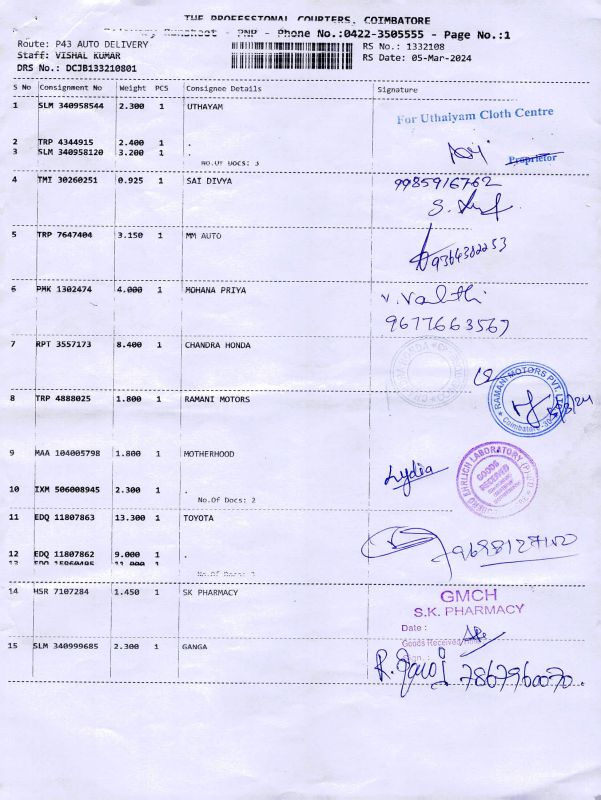 THE PROFESSIONAL COURIERS, COIMBATORE
Delivery Runsheet - PNP - Phone No.:0422-3505555 - Page No.:1
Route: P43 AUTO DELIVERY
RS No.: 1332108
Staff: VISHAL KUMAR
RS Date: 05-Mar-2024
DRS No.: DCJB133210801
S No Consignment No Weight PCS Consignee Details Signature
1 SLM 340958544 2.300 1 UTHAYAM
For Uthaiyam Cloth Centre
2 TRP 4344915 2.400 1 .
3 SLM 340958120 3.200 1 .
Proprietor
No.Of Docs: 3
4 TMI 30260251 0.925 1 SAI DIVYA
9985916762
5 TRP 7647404 3.150 1 MM AUTO
9364382253
6 PMK 1302474 4.000 1 MOHANA PRIYA
9677663567
7 RPT 3557173 8.400 1 CHANDRA HONDA
8 TRP 4888025 1.800 1 RAMANI MOTORS
RAMANI MOTORS PVT. LTD
Coimbatore
5/3/24
9 MAA 104005798 1.800 1 MOTHERHOOD
Lydia
EHRLICH LABORATORY (P) LTD
GOODS
RECEIVED
10 IXM 506008945 2.300 1 .
No.Of Docs: 2
11 EDQ 11807863 13.300 1 TOYOTA
9698127150
12 EDQ 11807862 9.000 1 .
13 EDQ 15960495 11.000 1
No.Of Docs: 3
14 HSR 7107284 1.450 1 SK PHARMACY
GMCH
S.K. PHARMACY
Date :
Goods Received
15 SLM 340999685 2.300 1 GANGA
7867960070